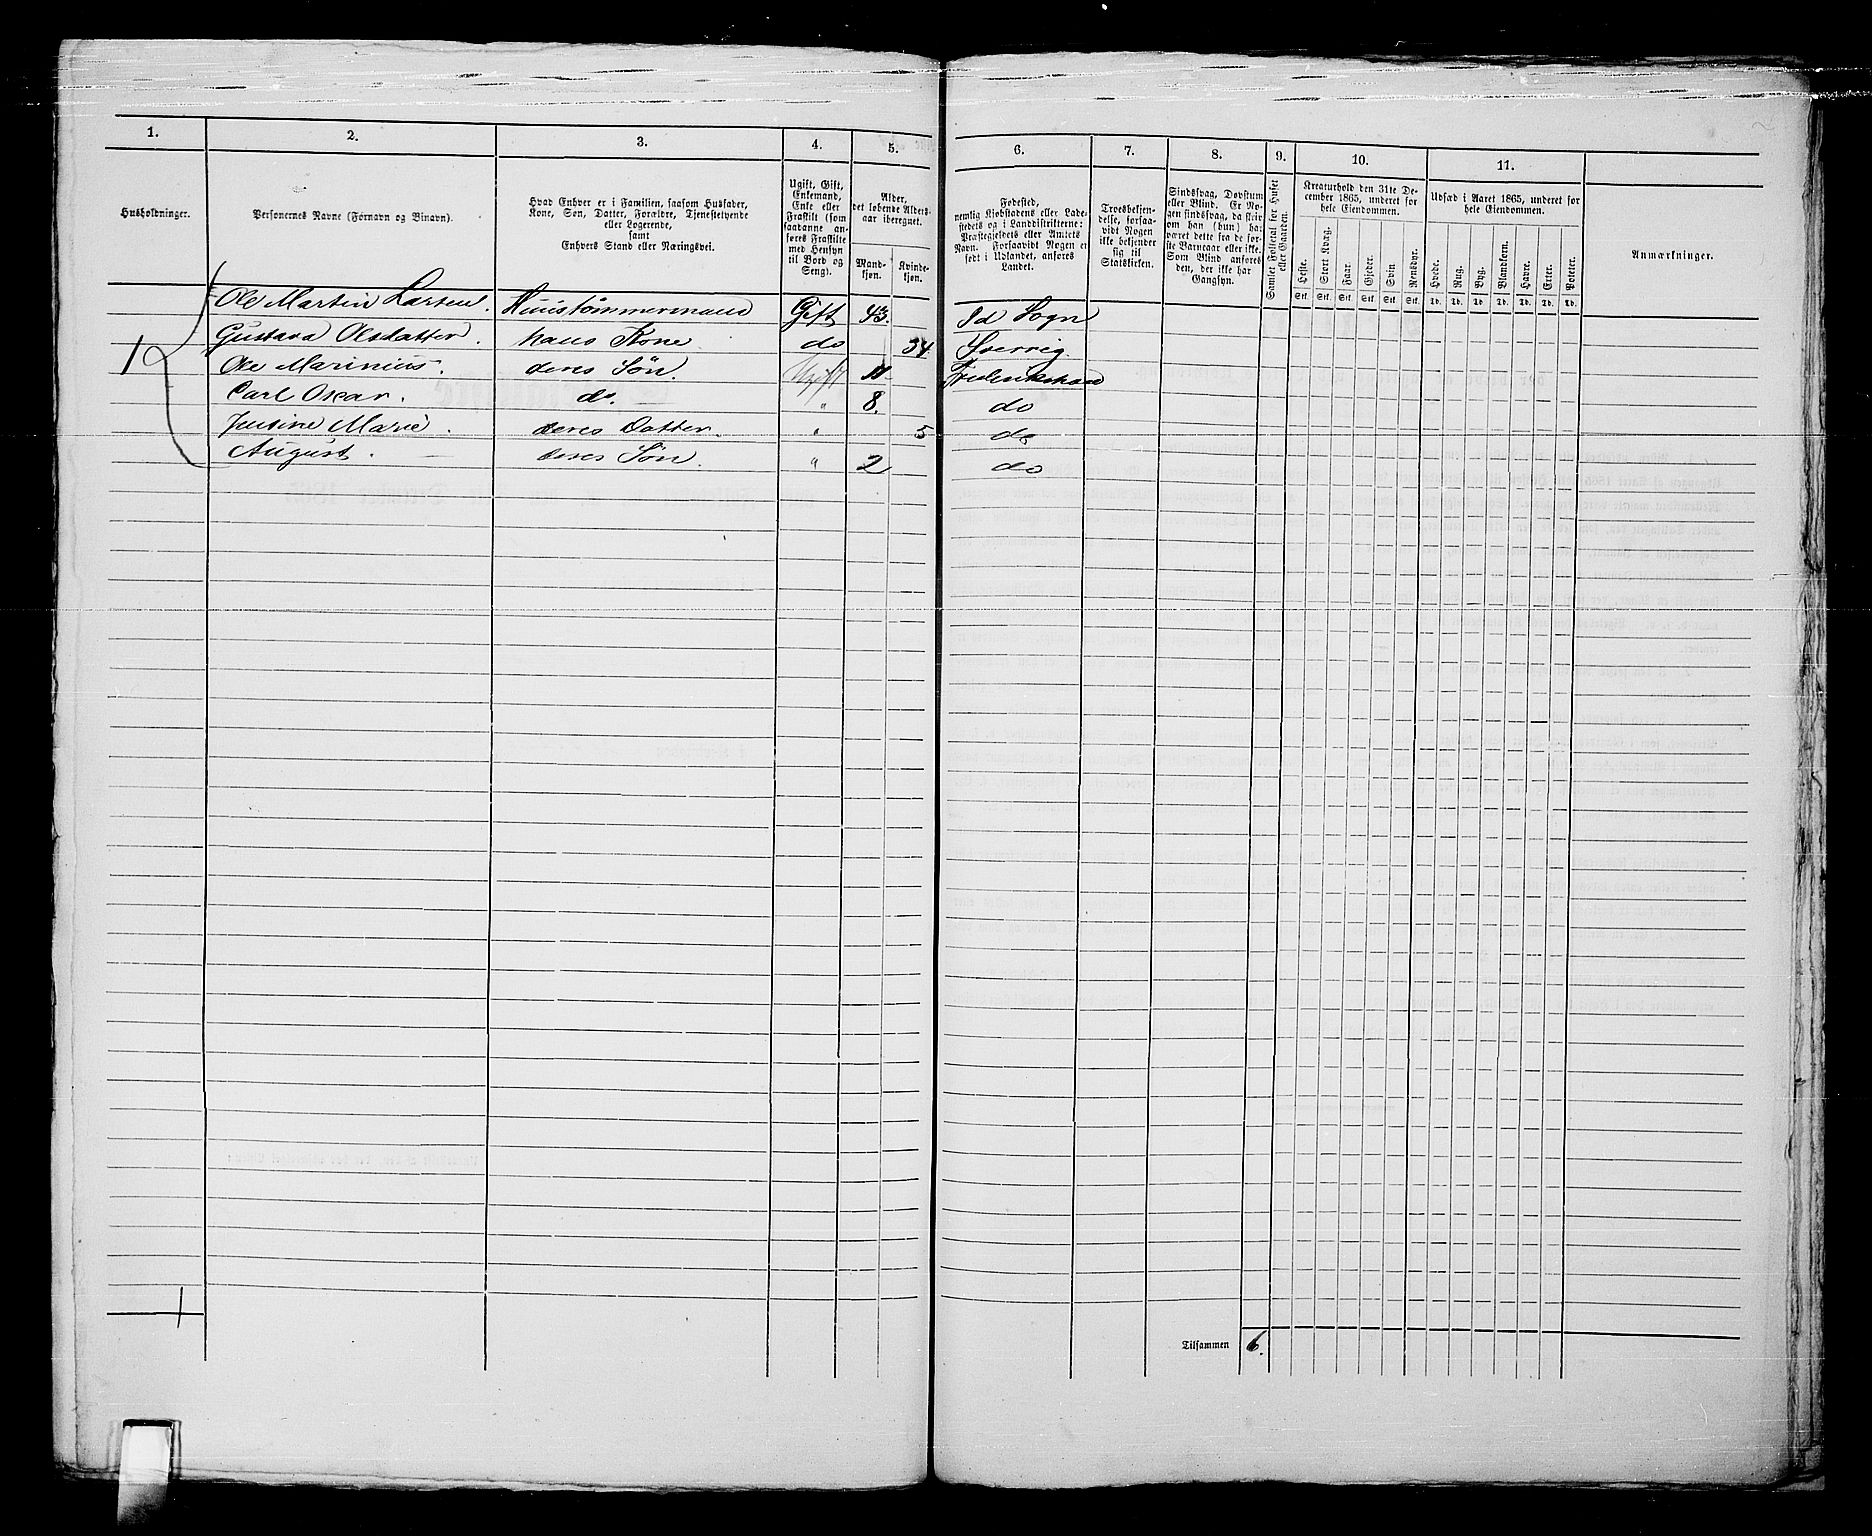 1. 2. 3. 4. 5. 6. 7. 8. 9. 10. 11.
Husholdninger.
Personernes Navne (Fornavn og Binavn).
Hvad Enhver er i Familien, saasom Husfader,
Kone, Søn, Datter, Forældre, Tjenestetyende
eller Logerende,
samt
Enhvers Stand eller Næringsvei.
Ugift, Gift,
Enkemand,
Enke eller
Fraskilt (som
saadanne an-
føres Fraskilte
med Hensyn
til Bord og
Seng).
Alder,
det løbende Alders-
aar iberegnet.
Mand-
kjøn.
Kvinde-
kjøn.
Fødested,
nemlig Kjøbstadens eller Lade-
stedets og i Landdistrikterne:
Præstegjeldets eller Amtets
Navn. Forsaavidt Nogen er
født i Udlandet, anføres
Landet.
Troesbekjen-
delse, forsaa-
vidt Nogen
ikke bekjender
sig til
Statskirken.
Sindssvag, Døvstum
eller Blind. Er No-
gen sindssvag, da skriv
om han (hun) har
været dette fra de før-
ste Barneaar eller ikke.
Som Blind anføres
den, der ikke har
Gangsyn.
Samlet Folketal for Huset
eller Gaarden.
Kreaturhold den 31te De-
cember 1865, underet for
hele Eiendommen.
Heste. Stort Kvæg. Faar. Gjeder. Svin Rensdyr.
Stk. Stk. Stk. Stk. Stk. Stk.
Udsæd i Aaret 1865, underet for
hele Eiendommen.
Hvede. Rug. Byg. Blandkorn. Havre. Erter. Poteter.
Td. Td. Td. Td. Td. Td. Td.
Anmærkninger.
1 Ole Martin Larsen. Huustømmermand Gift 43. Id Sogn
Gustava Olsdatter. hans Kone do 34 Sverrig.
Ole Marinius. deres Søn. Ugift 11 Frederikshald
Carl Oscar. do. " 8. do
Justine Marie. deres Datter. " 5 do
August. deres Søn. " 2 do
1
Tilsammen 6.